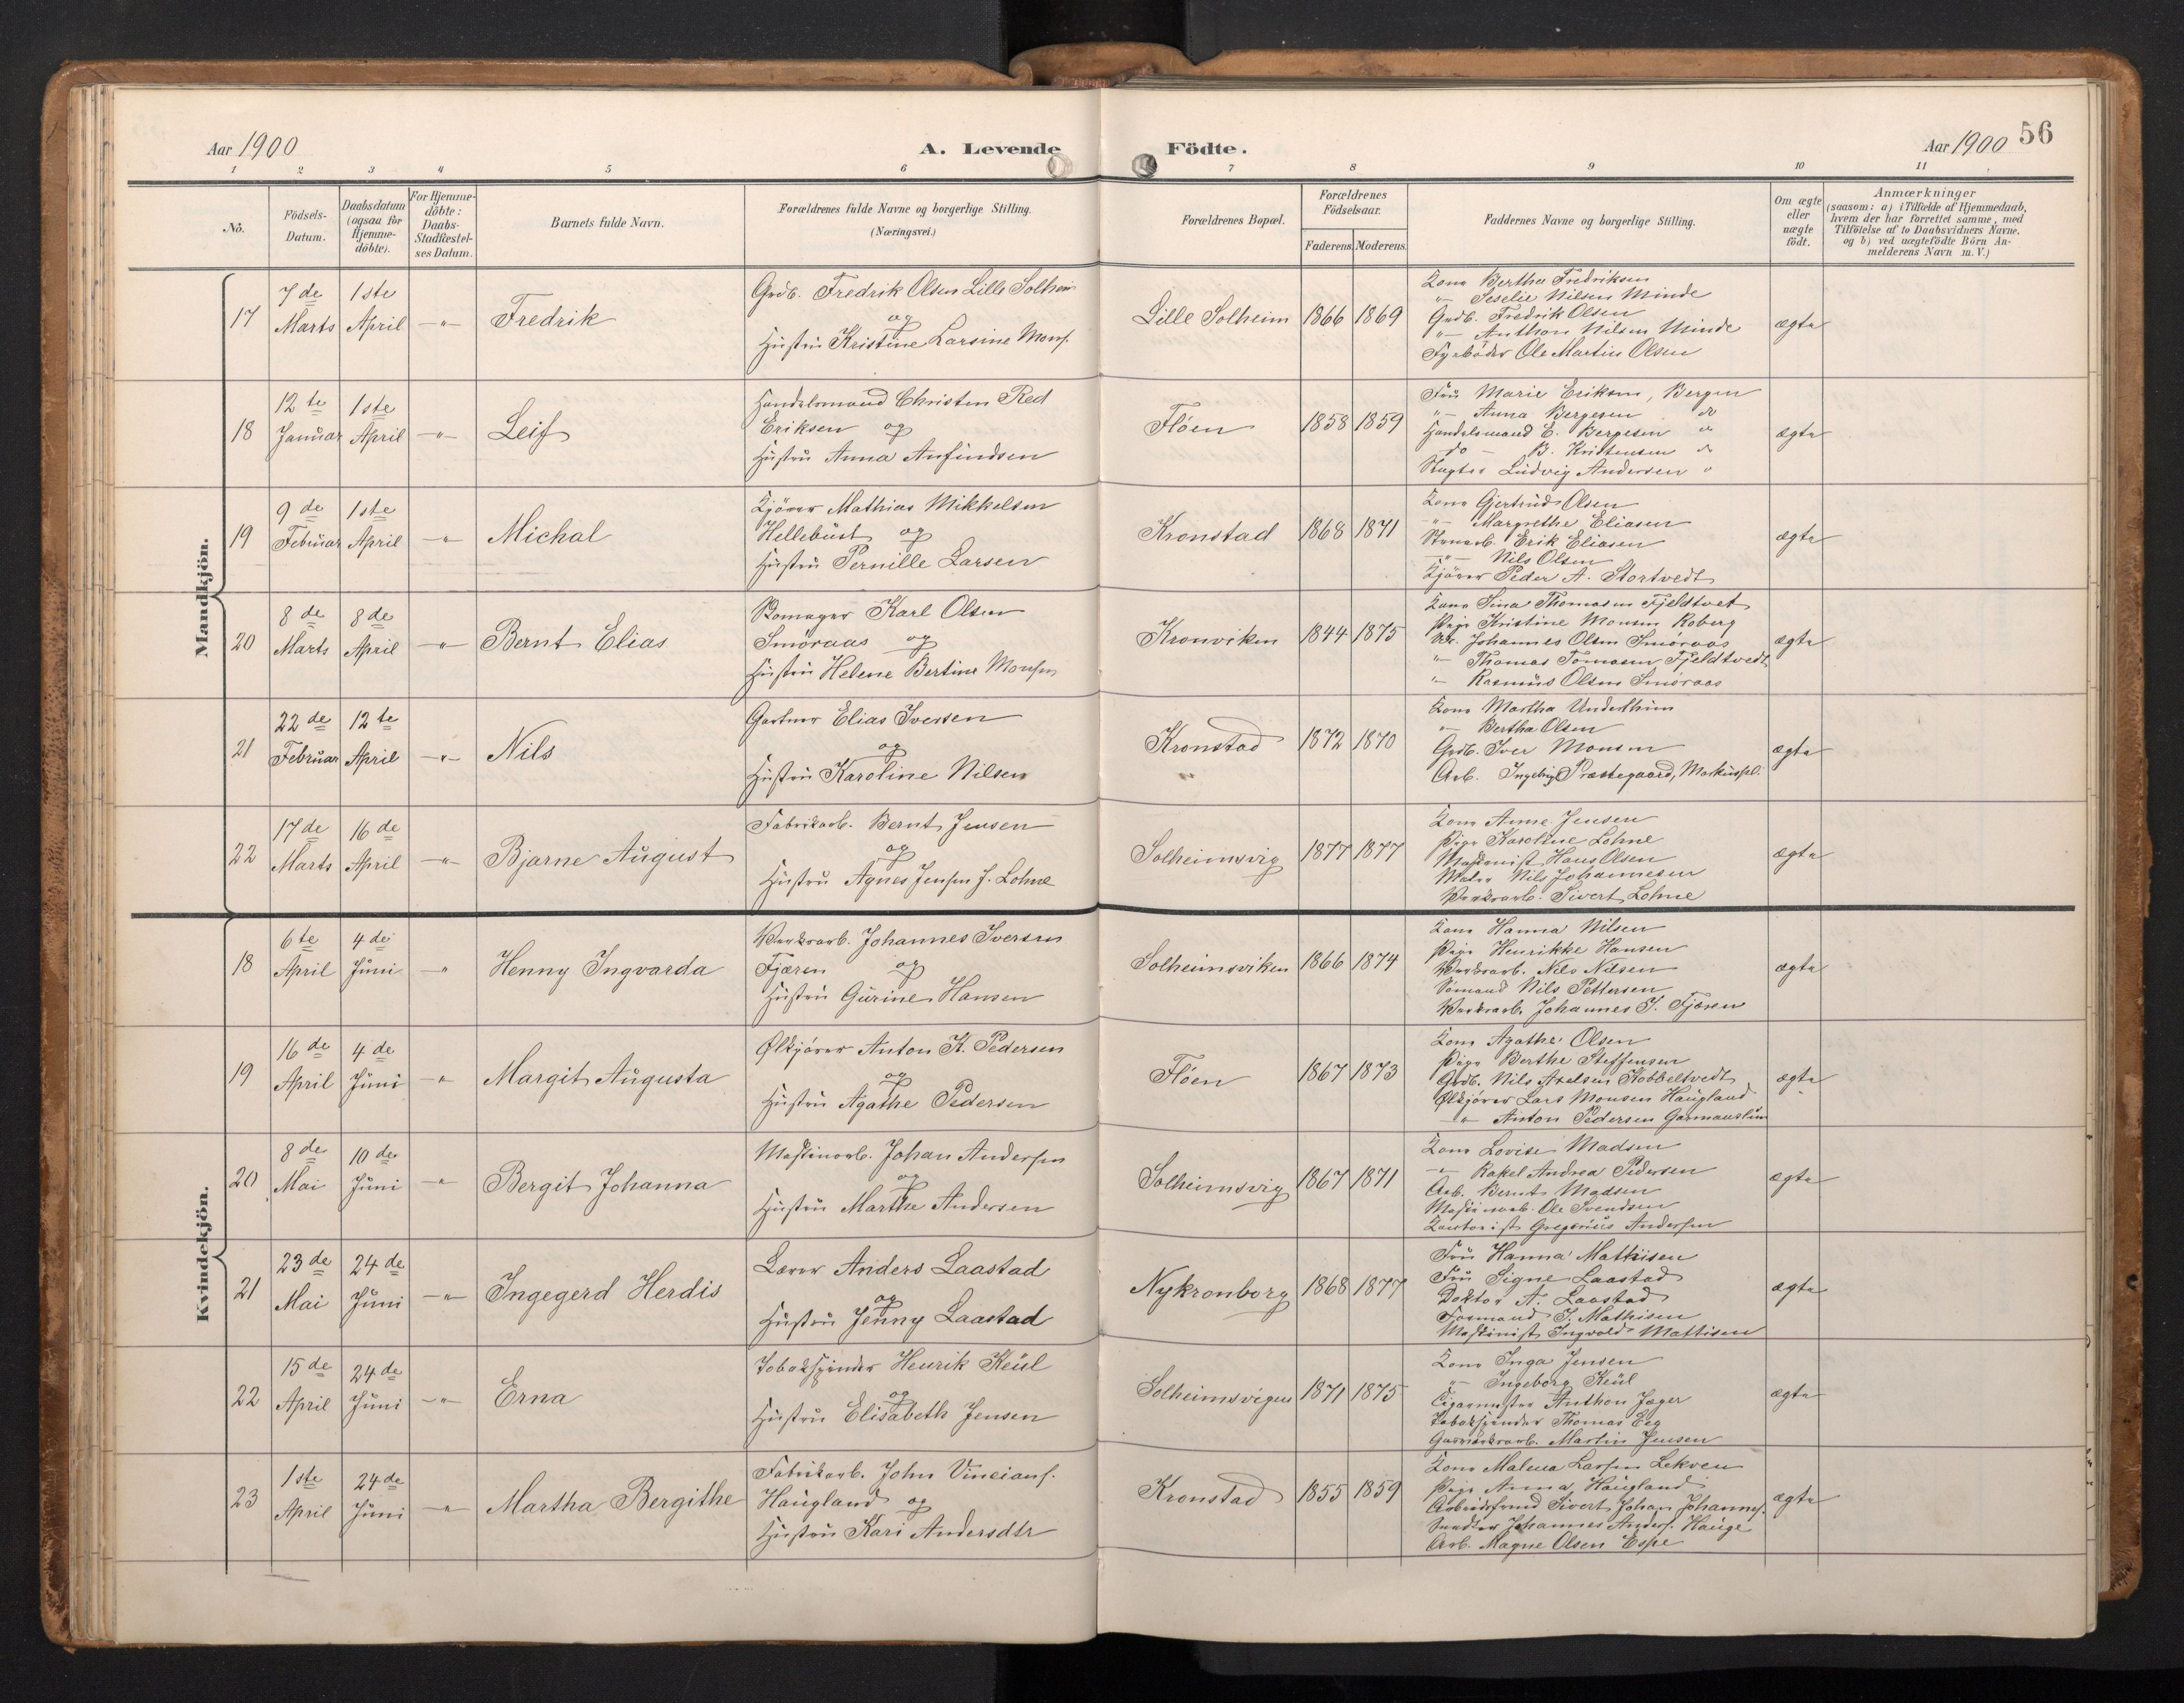 56
Aar 1900
A. Levende
Födte.
Aar 1900
1 2 3 4 5 6 7 8 9 10 11
No.
Födsels-
Datum.
Daabsdatum
(ogsaa for
Hjemme-
döbte).
For Hjemme-
döbte:
Daabs-
Stadfæstel-
ses Datum.
Barnets fulde Navn.
Forældrenes fulde Navne og borgerlige Stilling.
(Næringsvei.)
Forældrenes Bopæl.
Forældrenes
Födselsaar.
Faderens. Moderens.
Faddernes Navne og borgerlige Stilling.
Om ægte
eller
uægte
födt.
Anmærkninger
(saasom: a) i Tilfælde af Hjemmedaab,
hvem der har forrettet samme, med
Tilföielse af to Daabsvidners Navne.
og b) ved uægtefödte Börn An-
melderens Navn m. V.)
Mandkjön.
17
7de
Marts
1ste
April
-"-
Fredrik
Grdb. Fredrik Olsen Lille Solheim
og
Hustru Kristine Larsine Mons.
Lille Solheim
1866
1869
Kone Berthe Fredriksen
"- Seselie Nilsen Minde
Grdb. Fredrik Olsen
"- Anthon Nilsen Minde
Fyrböder Ole Martin Olsen
ægte
18
12te
Januar
1ste
April
-"-
Leif
Handelsmand Christen Red
Eriksen og
Hustru Anna Anfindsen
Flöen
1858
1859
Fru Marie Eriksen, Bergen
"- Anna Bergesen do
Handelsmand E. Bergesen "
do - B. Kristensen do
Slagter Ludvig Andersen "
ægte
19
9de
Februar
1ste
April
-"-
Michal
Kjörer Mathias Mikkelsen
Hellebust og
Hustru Pernille Larsen
Kronstad
1868
1871
Kone Gjertrud Olsen
"- Margrethe Eliasen
Stenarb. Erik Eliasen
-"- Nils Olsen
Kjörer Peder A. Stortvedt
ægte
20
8de
Marts
8de
April
-"-
Bernt Elias
Skomager Karl Olsen
Smöraas og
Hustru Helene Bertine Monsen
Kronviken
1844
1875
Kone Sina Thomasen Fjeldtvet
Pige Kristine Monsen Roberg
Johannes Olsen Smöraas
"- Thomas Tomasen Fjeldtvedt
"- Rasmus Olsen Smöraas
ægte
21
22de
Februar
12te
April
-"-
Nils
Gartner Elias Iversen
og
Hustru Karoline Nilsen
Kronstad
1872
1870
Kone Martha Underthun
"- Bertha Olsen
Grdb. Iver Monsen
Arb. Ingebrigt Præstegaard, Markuspl.
ægte
22
17de
Marts
16de
April
-"-
Bjarne August
Fabrikarb. Bernt Jensen
og
Hustru Agnes Jensen f. Lohne
Solheimsvig
1877
1877
Kone Anne Jensen
Pige Karoline Lohne
Maskinist Hans Olsen
Maler Nils Johannesen
Værksarb. Sivert Lohne
ægte
Kvindekjön.
18
6te
April
4de
Juni
"
Henny Ingvarda
Værksarb. Johannes Iversen
Fjæren og
Hustru Gurine Hansen
Solheimsviken
1866
1874
Kone Hanna Nilsen
Pige Henrikke Hansen
Værksarb. Nils Nilsen
Sömand Nils Pettersen
Værksarb. Johannes I. Fjæren
ægte
19
16de
April
4de
Juni
-"-
Margit Augusta
Ölkjörer Anton K. Pedersen
og
Hustru Agathe Pedersen
Flöen
1867
1873
Kone Agathe Olsen
Pige Berthe Steffensen
Grdb. Nils Axelsen Kobbeltvedt
Ölkjörer Lars Monsen Haugland
-"- Anton Pedersen Garmanslun
ægte
20
8de
Mai
10de
Juni
-"-
Bergit Johanna
Maskinarb. Johan Andersen
og
Hustru Marthe Andersen
Solheimsvig
1867
1871
Kone Lovise Madsen
-"- Rakel Andrea Pedersen
Arb. Bernt Madsen
Maskinarb. Ole Svendsen
Kontorist Gregorius Andersen
ægte
21
23de
Mai
24de
Juni
-"-
Ingegerd Herdis
Lærer Anders Laastad
og
Hustru Jenny Laastad
Nykronborg
1868
1877
Fru Hanna Mathisen
Fru Signe Laastad
Doktor A. Laastad
Formand J. Mathisen
Maskinist Ingvald Mattisen
ægte
22
15de
April
24de
Juni
-"-
Erna
Tobakspinder Henrik Keül
og
Hustru Elisabeth Jensen
Solheimsvigen
1871
1875
Kone Inga Jensen
"- Ingeborg Keül
Cigarmester Anthon Jæger
Tobakspinder Thomas Eeg
Gasværksarb. Martin Jensen
ægte
23
1ste
April
24de
Juni
-"-
Martha Bergithe
Fabrikarb. John Vincians.
Haugland og
Hustru Kari Andersdtr
Kronstad
1855
1859
Kone Malena Larsen Lekven
Pige Anna Haugland
Arbeidsfmd Sivert Johan Johannes.
Johannes Anders. Hauge
Arb. Magne Olsen Espe
ægte